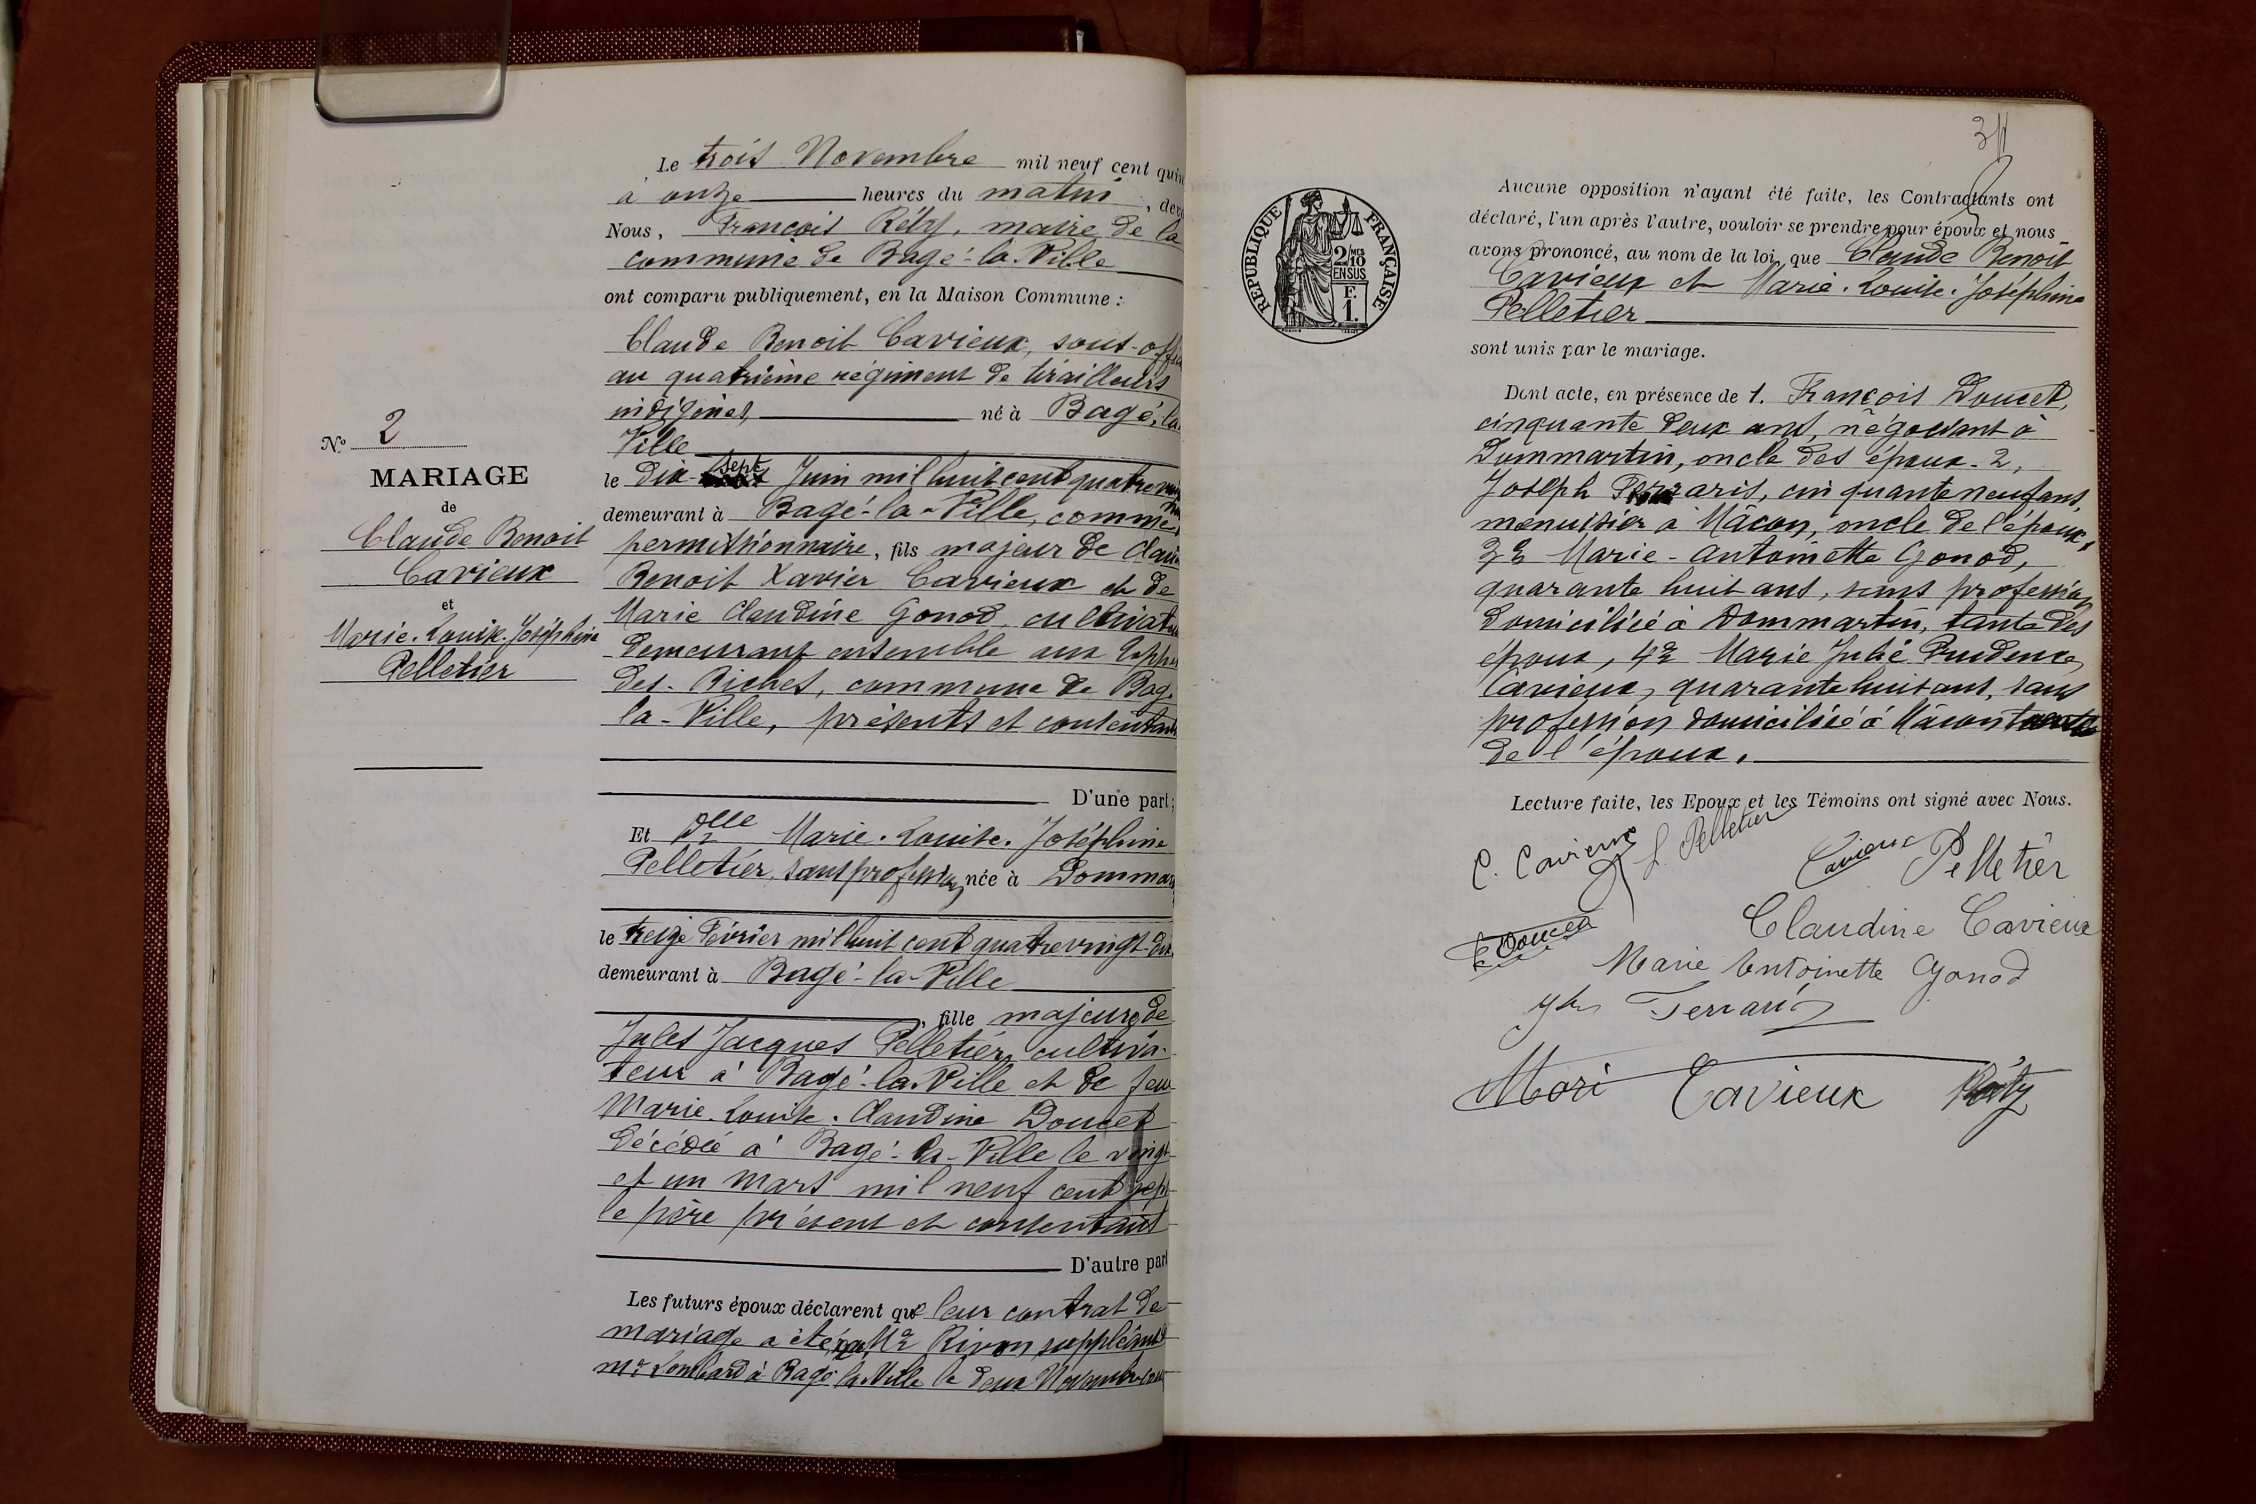 Le trois Novembre mil neuf cent quin
à onze heures du matin, dev
Nous, François Réty, maire de la
commune de Bagé-la-Ville
ont comparu publiquement, en la Maison Commune :
Claude Benoit Cavieux, sous-offi
au quatrième régiment de tirailleurs
indigènes, né à Bagé-la
Ville
N° 2
MARIAGE
de
Claude Benoit
Cavieux
et
Marie-Louise-Joséphine
Pelletier
le dix-sept Juin mil huit cent quatre
demeurant à Bagé-la-Ville, comme
permissionnaire, fils majeur de Claude
Benoit Xavier Cavieux et de
Marie Claudine Gonod, cultivat
demeurant ensemble aux
des-Riches, commune de Bag
la-Ville, présents et consentants
D'une part ;
Et Dlle Marie-Louise-Joséphine
Pelletier, sans profession née à Dommar
le treize Février mil huit cent quatre vingt-dix
demeurant à Bagé-la-Ville
, fille majeure de
Jules Jacques Pelletier, cultiva-
teur à Bagé-la-Ville et de feu
Marie-Louise-Claudine Doucet
décédée à Bagé-la-Ville le vingt-
et un mars mil neuf cent sept
le père présent et consentant
D'autre part
Les futurs époux déclarent que leur contrat de
mariage a été Me Rivon, suppléant
Me Lombard à Bagé-la-Ville le deux Novembre
311
RÉPUBLIQUE FRANÇAISE
2/10
EN SUS
F.
1.
Aucune opposition n'ayant été faite, les Contractants ont
déclaré, l'un après l'autre, vouloir se prendre pour époux et nous
avons prononcé, au nom de la loi, que Claude Benoit
Cavieux et Marie-Louise-Joséphine
Pelletier
sont unis par le mariage.
Dont acte, en présence de 1. François Doucet,
cinquante deux ans, négociant à
Dommartin, oncle des époux. 2,
Joseph Ferraris, cinquante neuf ans,
menuisier à Mâcon, oncle de l'époux,
3e Marie-Antoinette Gonod,
quarante huit ans, sans profession
domiciliée à Dommartin, tante des
époux, 4e Marie Julie Prudence
Cavieux, quarante huit ans, sans
profession domiciliée à Mâcon tante
de l'époux.
Lecture faite, les Epoux et les Témoins ont signé avec Nous.
C. Cavieux L. Pelletier Cavieux Pelletier
Doucet Claudine Cavieux
Marie Antoinette Gonod
Jph Ferraris
Mari Cavieux Réty